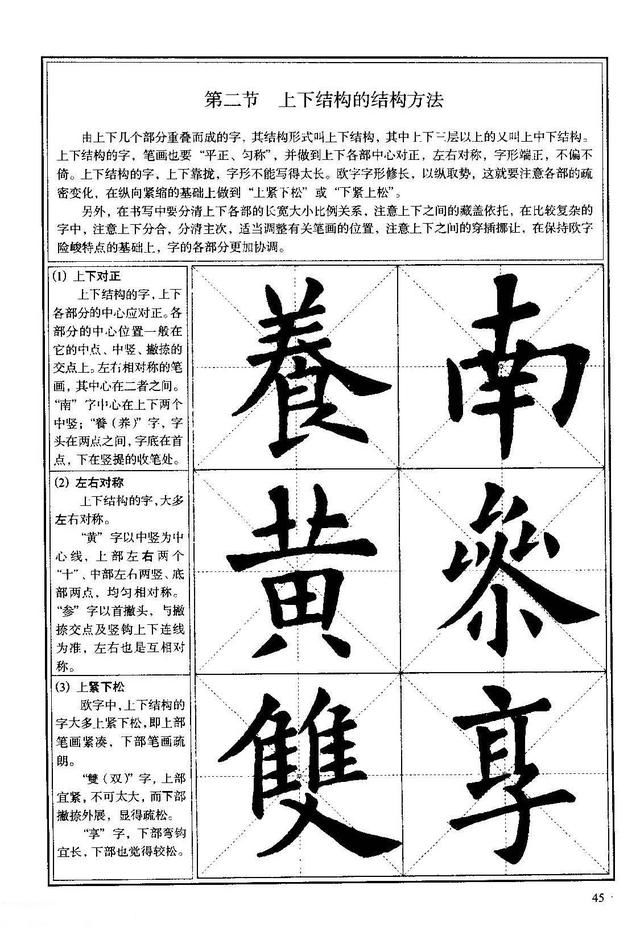 第二节 上下结构的结构方法
由上下几个部分重叠而成的字，其结构形式叫上下结构，其中上下三层以上的又叫上中下结构。
上下结构的字，笔画也要“平正、匀称”，并做到上下各部中心对正，左右对称，字形端正，不偏不
倚。上下结构的字，上下靠拢，字形不能写得太长。欧字字形修长，以纵取势，这就要注意各部的疏
密变化，在纵向紧缩的基础上做到“上紧下松”或“下紧上松”。
另外，在书写中要分清上下各部的长宽大小比例关系，注意上下之间的藏盖依托，在比较复杂的
字中，注意上下分合，分清主次，适当调整有关笔画的位置，注意上下之间的穿插挪让，在保持欧字
险峻特点的基础上，字的各部分更加协调。
(1) 上下对正
上下结构的字，上下
各部分的中心应对正。各
部分的中心位置一般在
它的中点、中竖、撇捺的
交点上。左右相对称的笔
画，其中心在二者之间。
“南”字中心在上下两个
中竖；“養（养）”字，字
头在两点之间，字底在首
点，下在竖提的收笔处。
養 南
(2) 左右对称
上下结构的字，大多
左右对称。
“黄”字以中竖为中
心线，上部左右两个
“十”、中部左右两竖、底
部两点，均匀相对称。
“参”字以首撇头，与撇
捺交点及竖钩上下连线
为准，左右也是互相对
称。
黄 叅
(3) 上紧下松
欧字中，上下结构的
字大多上紧下松，即上部
笔画紧凑，下部笔画疏
朗。
“雙（双）”字，上部
宜紧，不可太大，而下部
撇捺外展，显得疏松。
“享”字，下部弯钩
宜长，下部也觉得较松。
雙 享
45